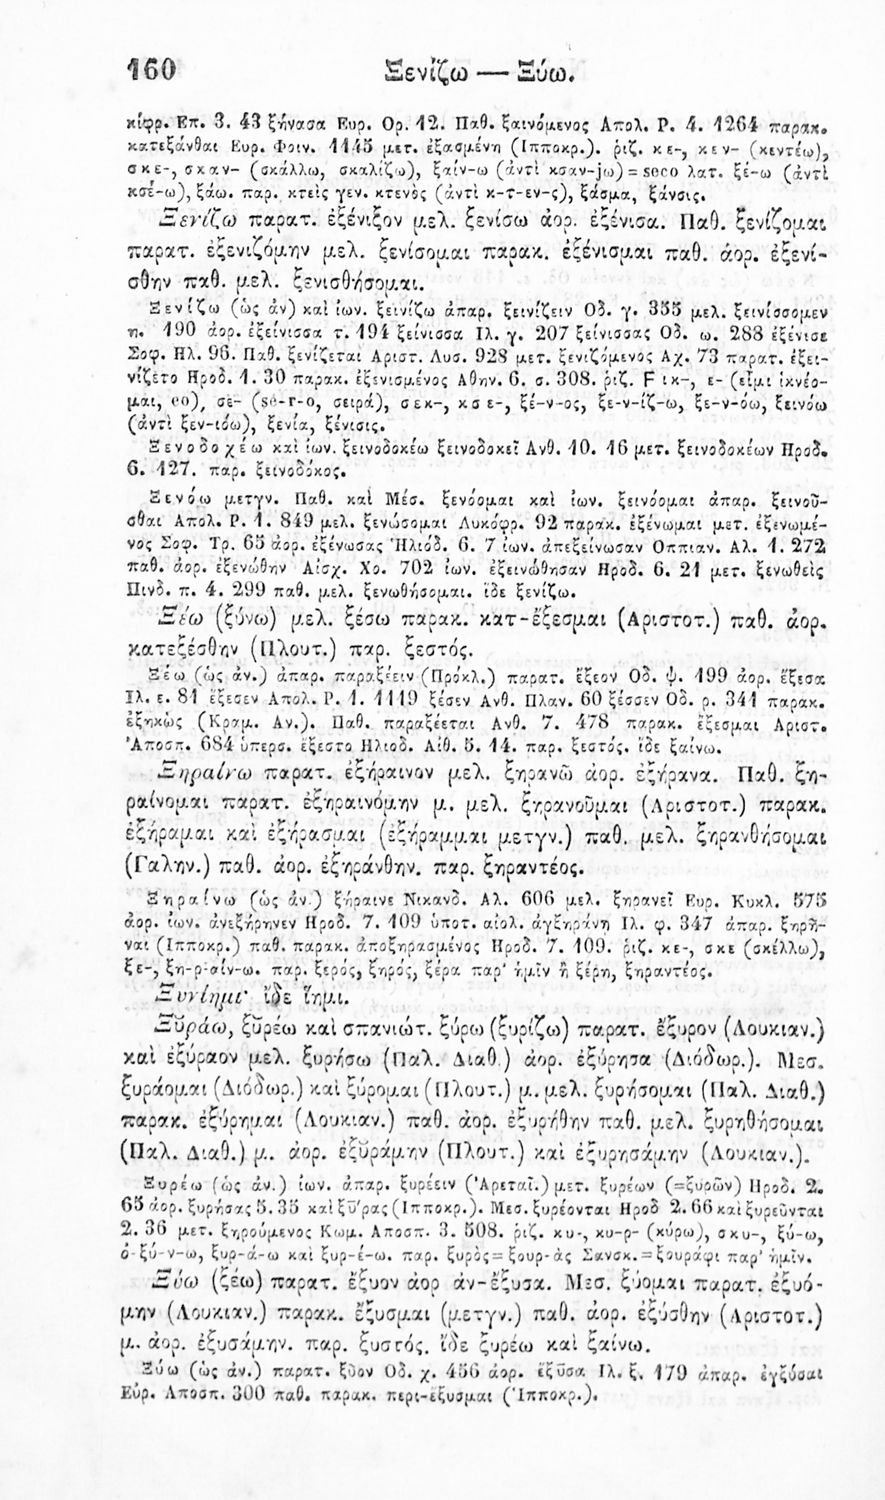 160 Ξενίζω — Ξύω.
κίφρ. Επ. 3. 43 ξήνασα Ευρ. Ορ. 12. Παθ. ξαινόμενος Απολ. Ρ. 4. 1264 παρακ.
κατεξάνθαι Ευρ. Φοιν. 1145 μετ. ἐξασμένη (Ιπποκρ.). ῥιζ. κε-, κεν- (κεντέω),
σκε-, σκαν- (σκάλλω, σκαλίζω), ξαίν-ω (ἀντὶ κσαν-jω) = seco λατ. ξέ-ω (ἀντὶ
κσέ-ω), ξάω. παρ. κτεὶς γεν. κτενὸς (ἀντὶ κ-τ-εν-ς), ξάσμα, ξάνσις.
Ξενίζω παρατ. ἐξένιξον μελ. ξενίσω ἀορ. ἐξένισα. Παθ. ξενίζομαι
παρατ. ἐξενιζόμην μελ. ξενίσομαι παρακ. ἐξένισμαι παθ. ἀορ. ἐξενί-
σθην παθ. μελ. ξενισθήσομαι.
Ξενίζω (ὡς ἀν) καὶ ἰων. ξεινίζω ἀπαρ. ξεινίζειν Οδ. γ. 355 μελ. ξεινίσσομεν
η. 190 ἀορ. ἐξείνισσα τ. 194 ξείνισσα Ιλ. γ. 207 ξείνισσας Οδ. ω. 288 ἐξένισε
Σοφ. Ηλ. 96. Παθ. ξενίζεται Αριστ. Λυσ. 928 μετ. ξενιζόμενος Αχ. 73 παρατ. ἐξει-
νίζετο Ηροδ. 1. 30 παρακ. ἐξενισμένος Αθην. 6. σ. 308. ῥιζ. Fικ-, ε- (εἶμι ἱκνέο-
μαι, eo), σε- (se-r-o, σειρά), σεκ-, κσε-, ξέ-ν-ος, ξε-ν-ίζ-ω, ξε-ν-όω, ξεινόω
(ἀντὶ ξεν-ιόω), ξενία, ξένισις.
Ξενοδοχέω καὶ ἰων. ξεινοδοκέω ξεινοδοκεῖ Ανθ. 10. 16 μετ. ξεινοδοκέων Ηροδ.
6. 127. παρ. ξεινοδόκος.
Ξενόω μετγν. Παθ. καὶ Μέσ. ξενόομαι καὶ ἰων. ξεινόομαι ἀπαρ. ξεινοῦ-
σθαι Απολ. Ρ. 1. 849 μελ. ξενώσομαι Λυκόφρ. 92 παρακ. ἐξένωμαι μετ. ἐξενωμέ-
νος Σοφ. Τρ. 65 ἀορ. ἐξένωσας Ἡλιόδ. 6. 7 ἰων. ἀπεξείνωσαν Οππιαν. Αλ. 1. 272
παθ. ἀορ. ἐξενώθην Αἰσχ. Χο. 702 ἰων. ἐξεινώθησαν Ηροδ. 6. 21 μετ. ξενωθεὶς
Πινδ. π. 4. 299 παθ. μελ. ξενωθήσομαι. ἴδε ξενίζω.
Ξέω (ξύνω) μελ. ξέσω παρακ. κατ-έξεσμαι (Αριστοτ.) παθ. ἀορ.
κατεξέσθην (Πλουτ.) παρ. ξεστός.
Ξέω (ὡς ἀν.) ἀπαρ. παραξέειν (Πρόκλ.) παρατ. ἔξεον Οδ. ψ. 199 ἀορ. ἔξεσα
Ιλ. ε. 81 ἔξεσεν Απολ. Ρ. 1. 1119 ξέσεν Ανθ. Πλαν. 60 ξέσσεν Οδ. ρ. 341 παρακ.
ἐξηκὼς (Κραμ. Αν.). Παθ. παραξέεται Ανθ. 7. 478 παρακ. ἔξεσμαι Αριστ.
Ἀποσπ. 684 ὑπερσ. ἔξεστο Ηλιοδ. Αἰθ. 5. 14. παρ. ξεστός. ἴδε ξαίνω.
Ξηραίνω παρατ. ἐξήραινον μελ. ξηρανῶ ἀορ. ἐξήρανα. Παθ. ξη-
ραίνομαι παρατ. ἐξηραινόμην μ. μελ. ξηρανοῦμαι (Αριστοτ.) παρακ.
ἐξήραμαι καὶ ἐξήρασμαι (ἐξήραμμαι μετγν.) παθ. μελ. ξηρανθήσομαι
(Γαλην.) παθ. ἀορ. ἐξηράνθην. παρ. ξηραντέος.
Ξηραίνω (ὡς ἀν.) ξήραινε Νικανδ. Αλ. 606 μελ. ξηρανεῖ Ευρ. Κυκλ. 575
ἀορ. ἰων. ἀνεξήρηνεν Ηροδ. 7. 109 ὑποτ. αἰολ. ἀγξηράνη Ιλ. φ. 347 ἀπαρ. ξηρῆ-
ναι (Ιπποκρ.) παθ. παρακ. ἀποξηρασμένος Ηροδ. 7. 109. ῥιζ. κε-, σκε (σκέλλω),
ξε-, ξη-ρ-αίν-ω. παρ. ξερός, ξηρός, ξέρα παρ' ἡμῖν ἢ ξέρη, ξηραντέος.
Ξυνίημι· ἴδε ἵημι.
Ξυράω, ξυρέω καὶ σπανιώτ. ξύρω (ξυρίζω) παρατ. ἔξυρον (Λουκιαν.)
καὶ ἐξύραον μελ. ξυρήσω (Παλ. Διαθ.) ἀορ. ἐξύρησα (Διόδωρ.). Μεσ.
ξυράομαι (Διόδωρ.) καὶ ξύρομαι (Πλουτ.) μ. μελ. ξυρήσομαι (Παλ. Διαθ.)
παρακ. ἐξύρημαι (Λουκιαν.) παθ. ἀορ. ἐξυρήθην παθ. μελ. ξυρηθήσομαι
(Παλ. Διαθ.) μ. ἀορ. ἐξυράμην (Πλουτ.) καὶ ἐξυρησάμην (Λουκιαν.).
Ξυρέω (ὡς ἀν.) ἰων. ἀπαρ. ξυρέειν (Ἀρεταῖ.) μετ. ξυρέων (=ξυρῶν) Ηροδ. 2.
65 ἀορ. ξυρήσας 5. 35 καὶ ξύρας (Ιπποκρ.). Μεσ. ξυρέονται Ηροδ 2. 66 καὶ ξυρεῦνται
2. 36 μετ. ξηρούμενος Κωμ. Αποσπ. 3. 508. ῥιζ. κυ-, κυ-ρ- (κύρω), σκυ-, ξύ-ω,
ὀ-ξύ-ν-ω, ξυρ-ά-ω καὶ ξυρ-έ-ω. παρ. ξυρὸς = ξουρ-ὰς Σανσκ. = ξουράφι παρ' ἡμῖν.
Ξύω (ξέω) παρατ. ἔξυον ἀορ ἀν-έξυσα. Μεσ. ξύομαι παρατ. ἐξυό-
μην (Λουκιαν.) παρακ. ἔξυσμαι (μετγν.) παθ. ἀορ. ἐξύσθην (Αριστοτ.)
μ. ἀορ. ἐξυσάμην. παρ. ξυστός. ἴδε ξυρέω καὶ ξαίνω.
Ξύω (ὡς ἀν.) παρατ. ξῦον Οδ. χ. 456 ἀορ. ἔξυσα Ιλ. ξ. 179 ἀπαρ. ἐγξύσαι
Εὐρ. Αποσπ. 300 παθ. παρακ. περι-έξυσμαι (Ἱπποκρ.).